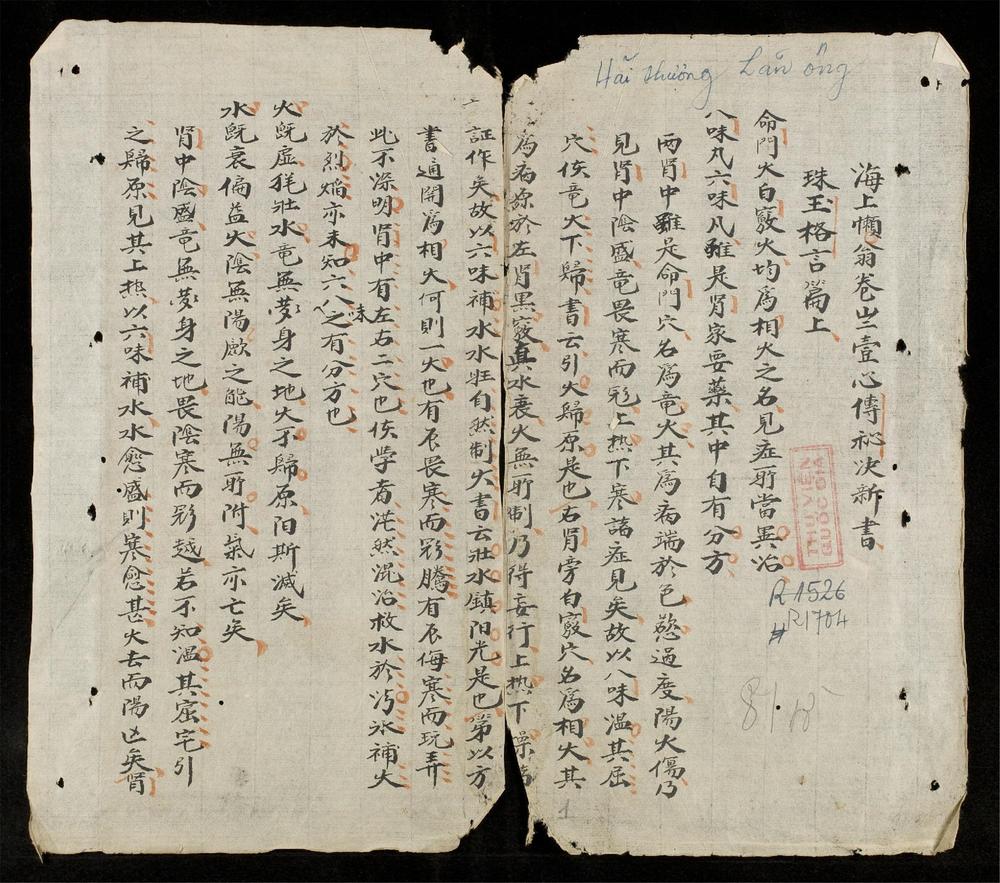 Hải thượng Lãn ông
海上懶翁卷山三壹心傳祕决新書
珠玉格言篇上
命門火白竅火均爲相火之名見症所當異治
八味丸六味凡雖是肾家要藥其中自有分方
兩肾中雖是命門穴名爲竜火其爲病端於色慾過度陽火傷乃
見肾中陰盛竜畏寒而彩上热下寒諸症見矣故以八味溫其屈
穴使竜火下歸書云引火歸原是也右肾旁白竅穴名爲相火其
爲病源於左肾黑竅真水衰火無所制乃得妄行上热下燥
証作矣故以六味補水水壯自然制火書云壯水鎮阳光是也第以方
書通開爲相火何則一火也有辰畏寒而彩騰有辰侮寒而玩弄
此不深明肾中有左右二穴也使学者茫然混治救水於沍氷補火
於烈焰亦未知六八味之有分方也
火旣虚徍壯水竜無蔆身之地火不歸原阳斯滅矣
水旣衰偏益火陰無陽厥之能陽無所附氣亦亡矣
肾中陰盛竜無蔆身之地畏陰寒而彩越若不知溫其窟宅引
之歸原見其上热以六味補水水愈盛則寒愈甚火去而陽亡矣肾
THƯ VIỆN
QUỐC GIA
R.1526
R1704
81.15
1